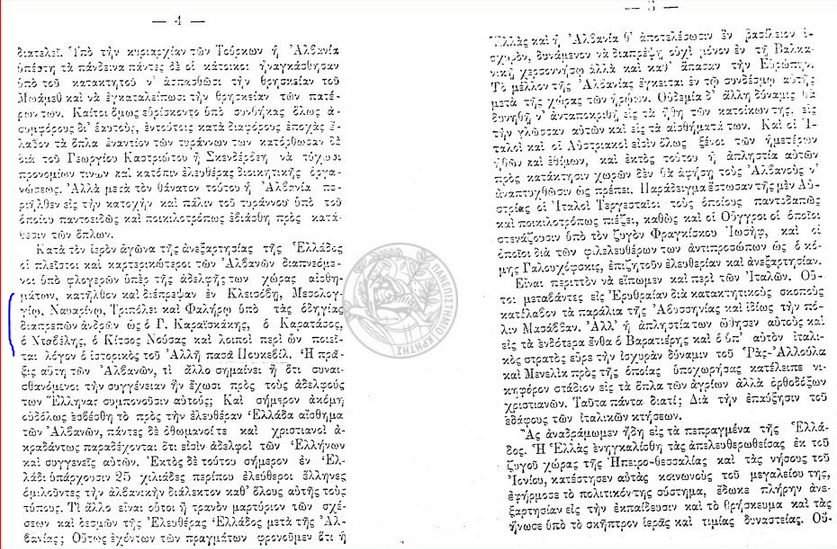 — 4 —
διατελεῖ. Ὑπὸ τὴν κυριαρχίαν τῶν Τούρκων ἡ Ἀλβανία
ὑπέστη τὰ πάνδεινα πάντες δὲ οἱ κάτοικοι ἠναγκάσθησαν
ὑπὸ τοῦ κατακτητοῦ ν' ἀσπασθῶσι τὴν θρησκείαν τοῦ
Μωάμεθ καὶ νὰ ἐγκαταλείπωσι τὴν θρησκείαν τῶν πατέ-
ρων των. Καίτοι ὅμως εὑρίσκοντο ὑπὸ συνθήκας ὅλως ἀ-
συμφόρους δι' ἑαυτούς, ἐντούτοις κατὰ διαφόρους ἐποχὰς ἔ-
λαβον τὰ ὅπλα ἐναντίον τῶν τυράννων των κατόρθωσαν δὲ
διὰ τοῦ Γεωργίου Καστριώτου ἢ Σκενδέρβεη νὰ τύχωσι
προνομίων τινων καὶ κατόπιν ἐλευθέρας διοικητικῆς ὀργα-
νώσεως. Ἀλλὰ μετὰ τὸν θάνατον τούτου ἡ Ἀλβανία πε-
ριῆλθεν εἰς τὴν κατοχὴν καὶ πάλιν τοῦ τυράννου ὑπὸ τοῦ
ὁποίου παντοειδῶς καὶ ποικιλοτρόπως ἐβιάσθη πρὸς κατά-
θεσιν τῶν ὅπλων.
Κατὰ τὸν ἱερὸν ἀγῶνα τῆς ἀνεξαρτησίας τῆς Ἑλλάδος
οἱ πλεῖστοι καὶ καρτερικώτεροι τῶν Ἀλβανῶν διαπνεόμε-
νοι ὑπὸ φλογερῶν ὑπὲρ τῆς ἀδελφῆς των χώρας αἰσθη-
μάτων, κατῆλθον καὶ διέπρεψαν ἐν Κλεισόβῃ, Μεσολογ-
γίῳ, Ναυαρίνῳ, Τριπόλει καὶ Φαλήρῳ ὑπὸ τὰς ὁδηγίας
διαπρεπῶν ἀνδρῶν ὡς ὁ Γ. Καραϊσκάκης, ὁ Καρατάσος,
ὁ Ντσβέλης, ὁ Κίτσος Νούσας καὶ λοιποὶ περὶ ὧν ποιεῖ-
ται λόγον ὁ ἱστορικὸς τοῦ Ἀλλῆ πασᾶ Πουκεβίλ. Ἡ πρᾶ-
ξις αὕτη τῶν Ἀλβανῶν, τί ἄλλο σημαίνει ἢ ὅτι συναι-
σθανόμενοι τὴν συγγένειαν ἣν ἔχωσι πρὸς τοὺς ἀδελφούς
των Ἕλληνας συμπονοῦσιν αὐτούς; Καὶ σήμερον ἀκόμη
οὐδόλως ἐσβέσθη τὸ πρὸς τὴν ἐλευθέραν Ἑλλάδα αἴσθημα
τῶν Ἀλβανῶν, πάντες δὲ ὀθωμανοί τε καὶ χριστιανοὶ ἀ-
κραδάντως παραδέχονται ὅτι εἰσὶν ἀδελφοὶ τῶν Ἑλλήνων
καὶ συγγενεῖς αὐτῶν. Ἐκτὸς δὲ τούτου σήμερον ἐν Ἑλ-
λάδι ὑπάρχουσιν 25 χιλιάδες περίπου ἐλεύθεροι ἕλληνες
ὁμιλοῦντες τὴν ἀλβανικὴν διάλεκτον καθ' ὅλους αὐτῆς τοὺς
τύπους. Τί ἄλλο εἶναι οὗτοι ἢ τρανὸν μαρτύριον τῶν σχέ-
σεων καὶ δεσμῶν τῆς Ἐλευθέρας Ἑλλάδος μετὰ τῆς Ἀλ-
βανίας; Οὕτως ἐχόντων τῶν πραγμάτων φρονοῦμεν ὅτι ἡ
— 5 —
Ἑλλὰς καὶ ἡ Ἀλβανία θ' ἀποτελέσωσιν ἓν βασίλειον ἰ-
σχυρόν, δυνάμενον νὰ διαπρέψῃ οὐχὶ μόνον ἐν τῇ Βαλκα-
νικῇ χερσονήσῳ ἀλλὰ καὶ καθ' ἅπασαν τὴν Εὐρώπην.
Τὸ μέλλον τῆς Ἀλβανίας ἔγκειται ἐν τῷ συνδέσμῳ αὐτῆς
μετὰ τῆς χώρας τῶν ἡρώων. Οὐδεμία δ' ἄλλη δύναμις θὰ
δυνηθῇ ν' ἀνταποκριθῇ εἰς τὰ ἤθη τῶν κατοίκων της, εἰς
τὴν γλῶσσαν αὐτῶν καὶ εἰς τὰ αἰσθήματά των. Καὶ οἱ Ἰ-
ταλοὶ καὶ οἱ Αὐστριακοὶ εἰσὶν ὅλως ξένοι τῶν ἡμετέρων
ἠθῶν καὶ ἐθίμων, καὶ ἐκτὸς τούτου ἡ ἀπληστία αὐτῶν
πρὸς κατάκτησιν χωρῶν δὲν θὰ ἀφήσῃ τοὺς Ἀλβανοὺς ν'
ἀναπτυχθῶσιν ὡς πρέπει. Παράδειγμα ἔστωσαν τῆς μὲν Αὐ-
στρίας οἱ Ἰταλοὶ Τεργεσταῖοι τοὺς ὁποίους παντοδαπῶς
καὶ ποικιλοτρόπως πιέζει, καθὼς καὶ οἱ Οὗγγροι οἱ ὁποῖοι
στενάζουσιν ὑπὸ τὸν ζυγὸν Φραγκίσκου Ἰωσήφ, καὶ οἱ
ὁποῖοι διὰ τῶν φιλελευθέρων των ἀντιπροσώπων ὡς ὁ κό-
μης Γαλουχόφσκις, ἐπιζητοῦν ἐλευθερίαν καὶ ἀνεξαρτησίαν.
Εἶναι περιττὸν νὰ εἴπωμεν καὶ περὶ τῶν Ἰταλῶν. Οὗ-
τοι μεταβάντες εἰς Ἐρυθραίαν διὰ κατακτητικοὺς σκοποὺς
κατέλαβον τὰ παράλια τῆς Ἀβυσσηνίας καὶ ἰδίως τὴν πό-
λιν Μασάβαν. Ἀλλ' ἡ ἀπληστία των ὤθησεν αὐτοὺς καὶ
εἰς τὰ ἐνδότερα ἔνθα ὁ Βαρατιέρης καὶ ὁ ὑπ' αὐτὸν ἰταλι-
κὸς στρατὸς εὗρε τὴν ἰσχυρὰν δύναμιν τοῦ Ῥὰς-Ἀλλούλα
καὶ Μενελὶκ πρὸς τῆς ὁποίας ὑποχωρήσας κατέλειπε νι-
κηφόρον στάδιον εἰς τὰ ὅπλα τῶν ἀγρίων ἀλλὰ ὀρθοδόξων
χριστιανῶν. Ταῦτα πάντα διατί; Διὰ τὴν ἐπαύξησιν τοῦ
ἐδάφους τῶν ἰταλικῶν κτήσεων.
Ἂς ἀναδράμωμεν ἤδη εἰς τὰ πεπραγμένα τῆς Ἑλλά-
δος. Ἡ Ἑλλὰς ἐνηγκαλίσθη τὰς ἀπελευθερωθείσας ἐκ τοῦ
ζυγοῦ χώρας τῆς Ἠπειρο-θεσσαλίας καὶ τὰς νήσους τοῦ
Ἰονίου, κατέστησεν αὐτὰς κοινωνοὺς τοῦ μεγαλείου της,
ἐφήρμοσε τὸ πολιτικόντης σύστημα, ἔδωκε πλήρην ἀνε-
ξαρτησίαν εἰς τὴν ἐκπαίδευσιν καὶ τὸ θρήσκευμα καὶ τὰς
ἥνωσε ὑπὸ τὸ σκῆπτρον ἱερᾶς καὶ τιμίας δυναστείας. Οὐ-
ΠΑΝΕΠΙΣΤΗΜΙΟ ΚΡΗΤΗΣ